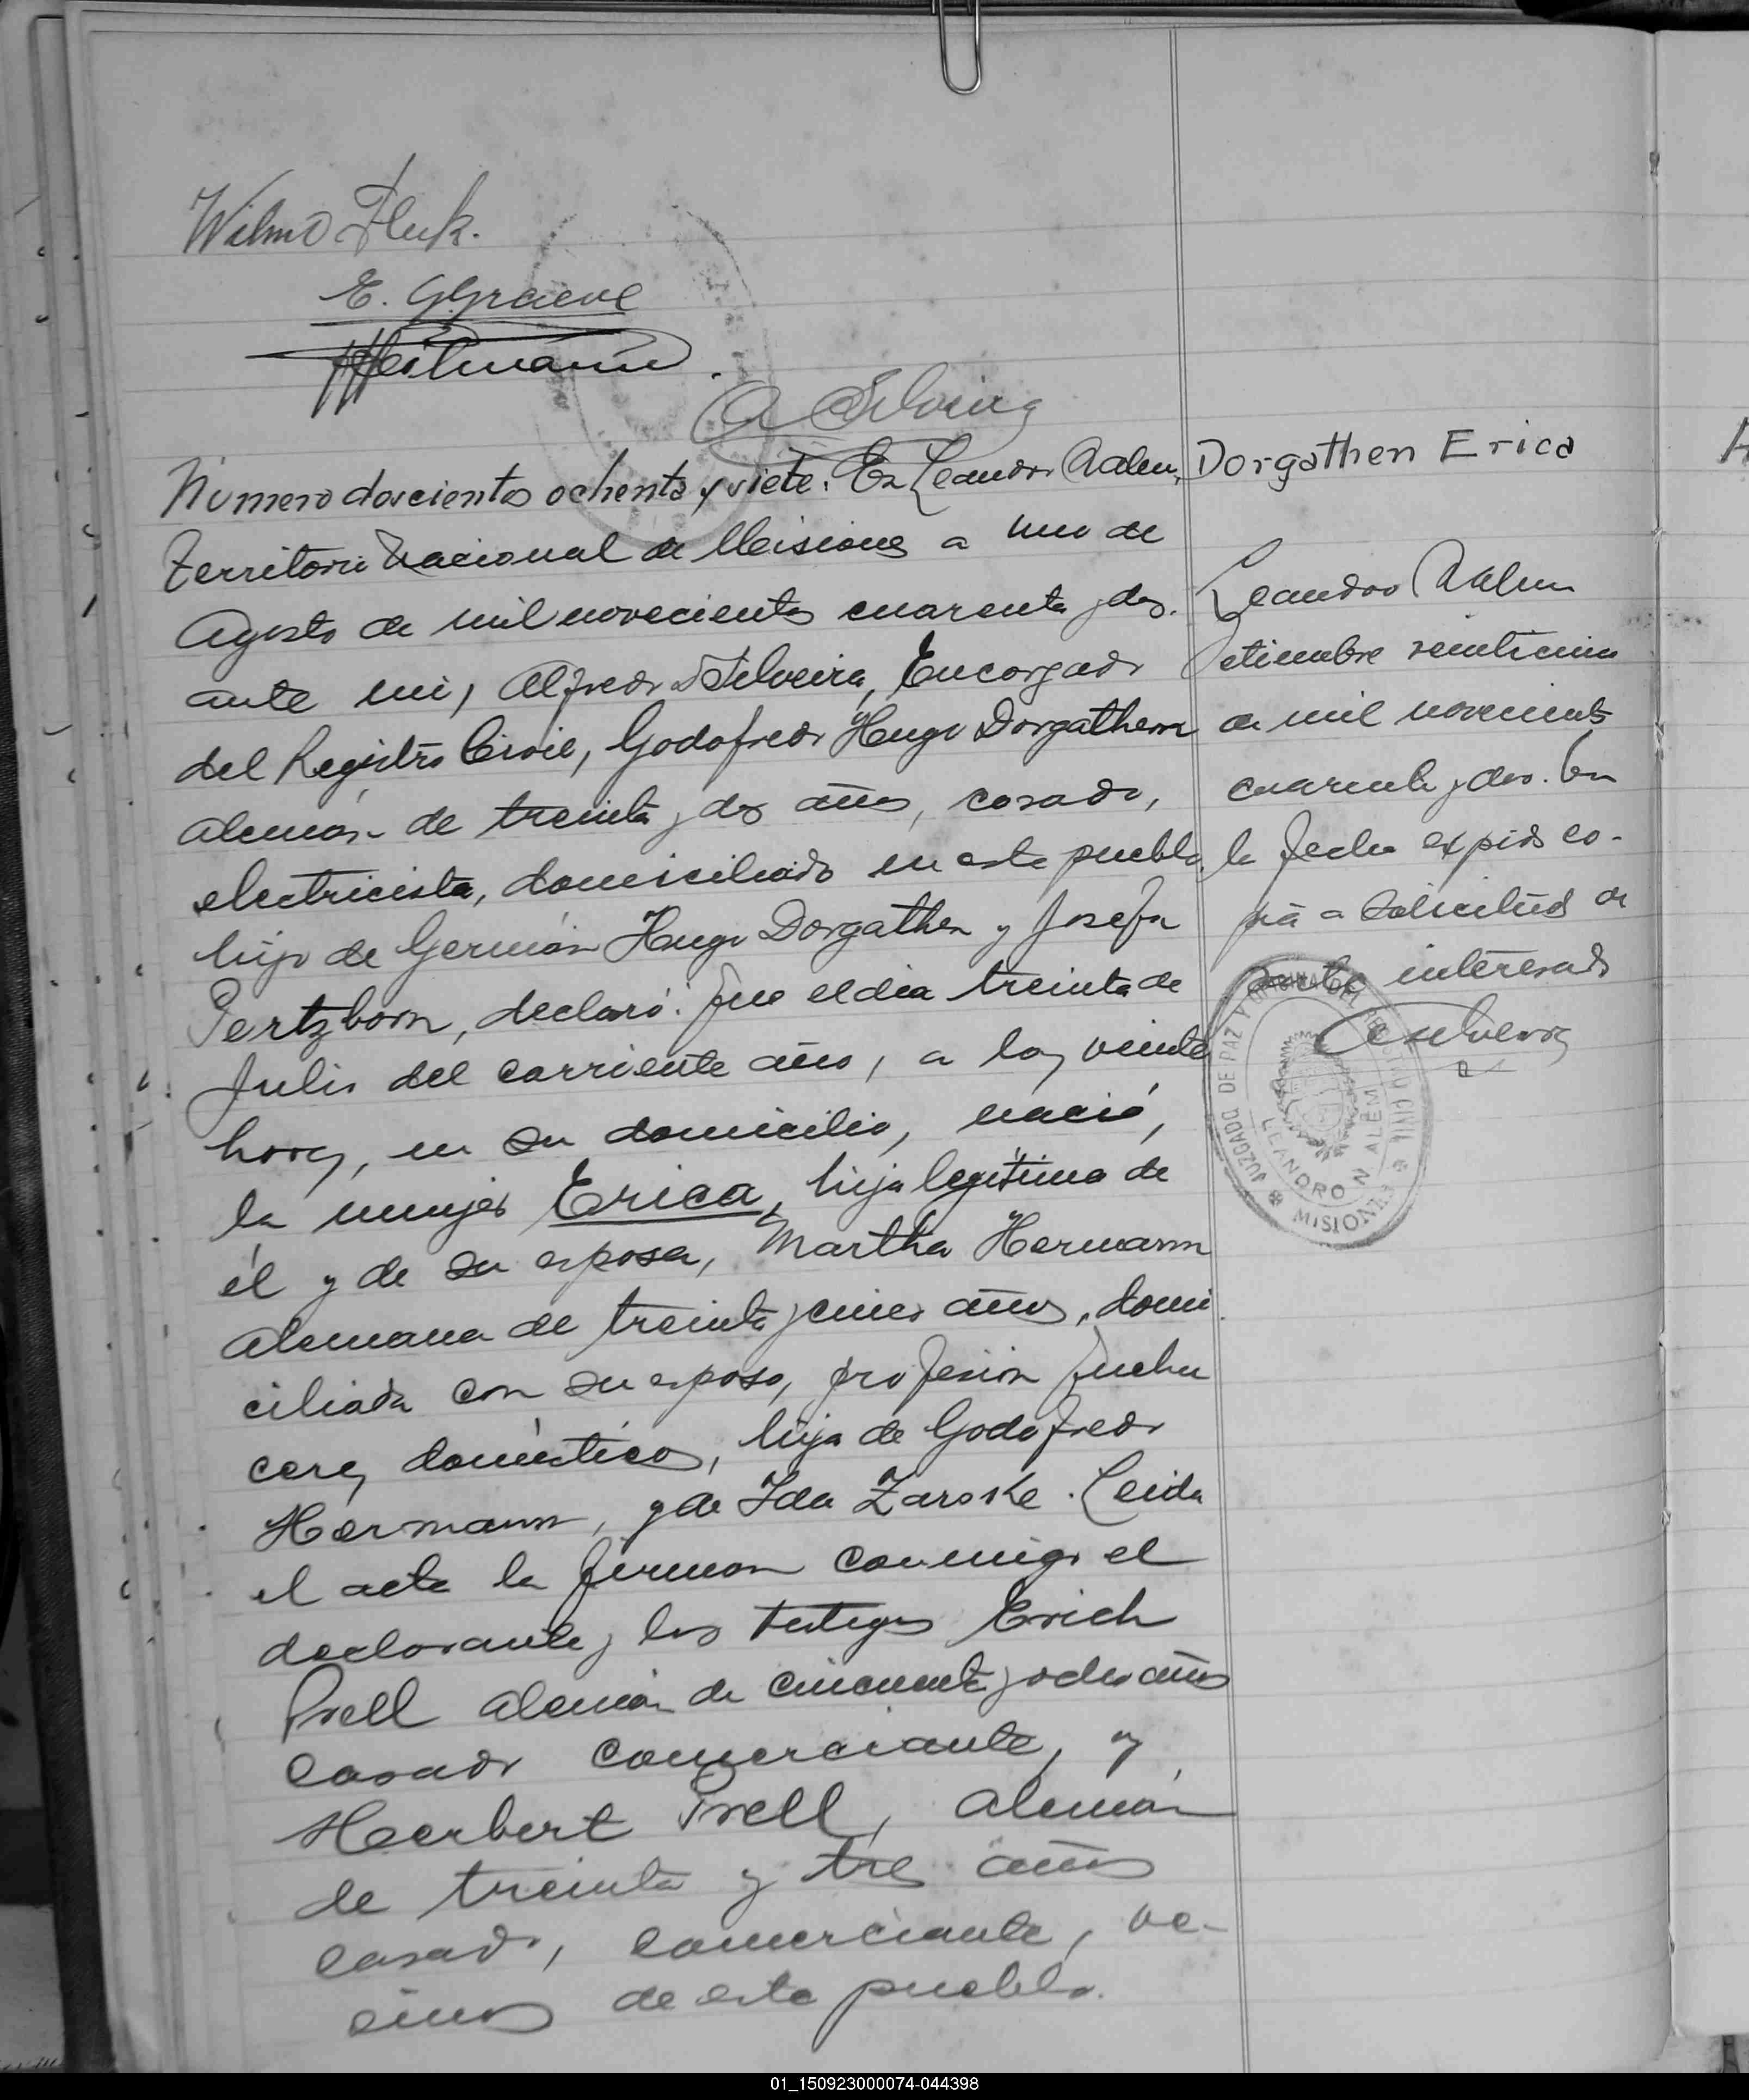 Wilmo Fluk.
E. Graeve
Heilmann
A Silveira
Número doscientos ochenta y siete. En Leandro Aalem,
Territorio Nacional de Misiones a uno de
Agosto de mil novecientos cuarenta y dos.
ante mi, Alfredo Silveira, Encargado
del Registro Civil, Godofredo Hugo Dorgathen
alemán de treinta y dos años, casado,
electricista, domiciliado en este pueblo,
hijo de Germán Hugo Dorgathen y Josefa
Pertzborn, declaró: Que el dia treinta de
Julio del corriente año, a las veinte
horas, en su domicilio, nació,
la mujer Erica, hija legítima de
él y de su esposa, Martha Hermann
alemana de treinta y cinco años, domi
ciliada con su esposo, profesión queha
ceres domésticos, hija de Godofredo
Hermann, y de Ida Zarske. Leida
el acta la firman conmigo el
declarante y los testigos Erich
Prell alemán de cincuenta y ocho años
casado comerciante, y
Heerbert Prell, alemán
de treinta y tres años
casado, comerciante, ve-
cinos de este pueblo.
Dorgathen Erica
Leandro Aalem
Setiembre veinticinco
de mil novecientos
cuarenta y dos. En
la fecha expido co-
pia a solicitud de
parte interesada
A Silveira
JUZGADO DE PAZ Y OFICINA DEL REGISTRO CIVIL
LEANDRO N ALÉM
MISIONES
01_150923000074-044398